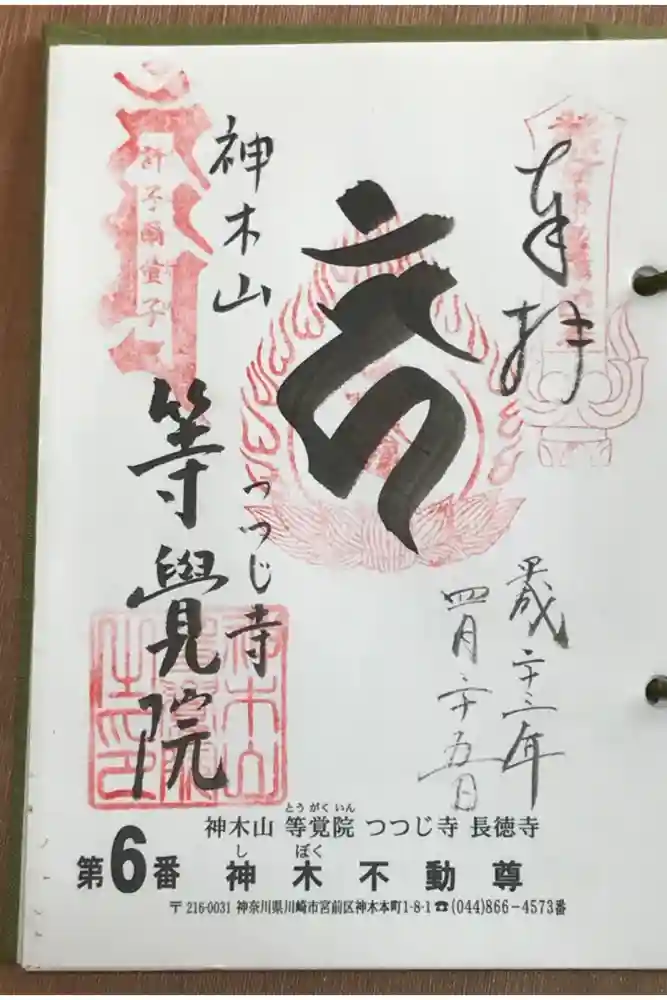 奉拝
平成二十三年
四月二十五日
神木山
つつじ寺
等覺院
計子爾童子
神木山
等覺院
之印
とうがくいん
神木山 等覚院 つつじ寺 長徳寺
し ぼく
第6番 神木不動尊
〒216-0031 神奈川県川崎市宮前区神木本町1-8-1☎(044)866-4573番